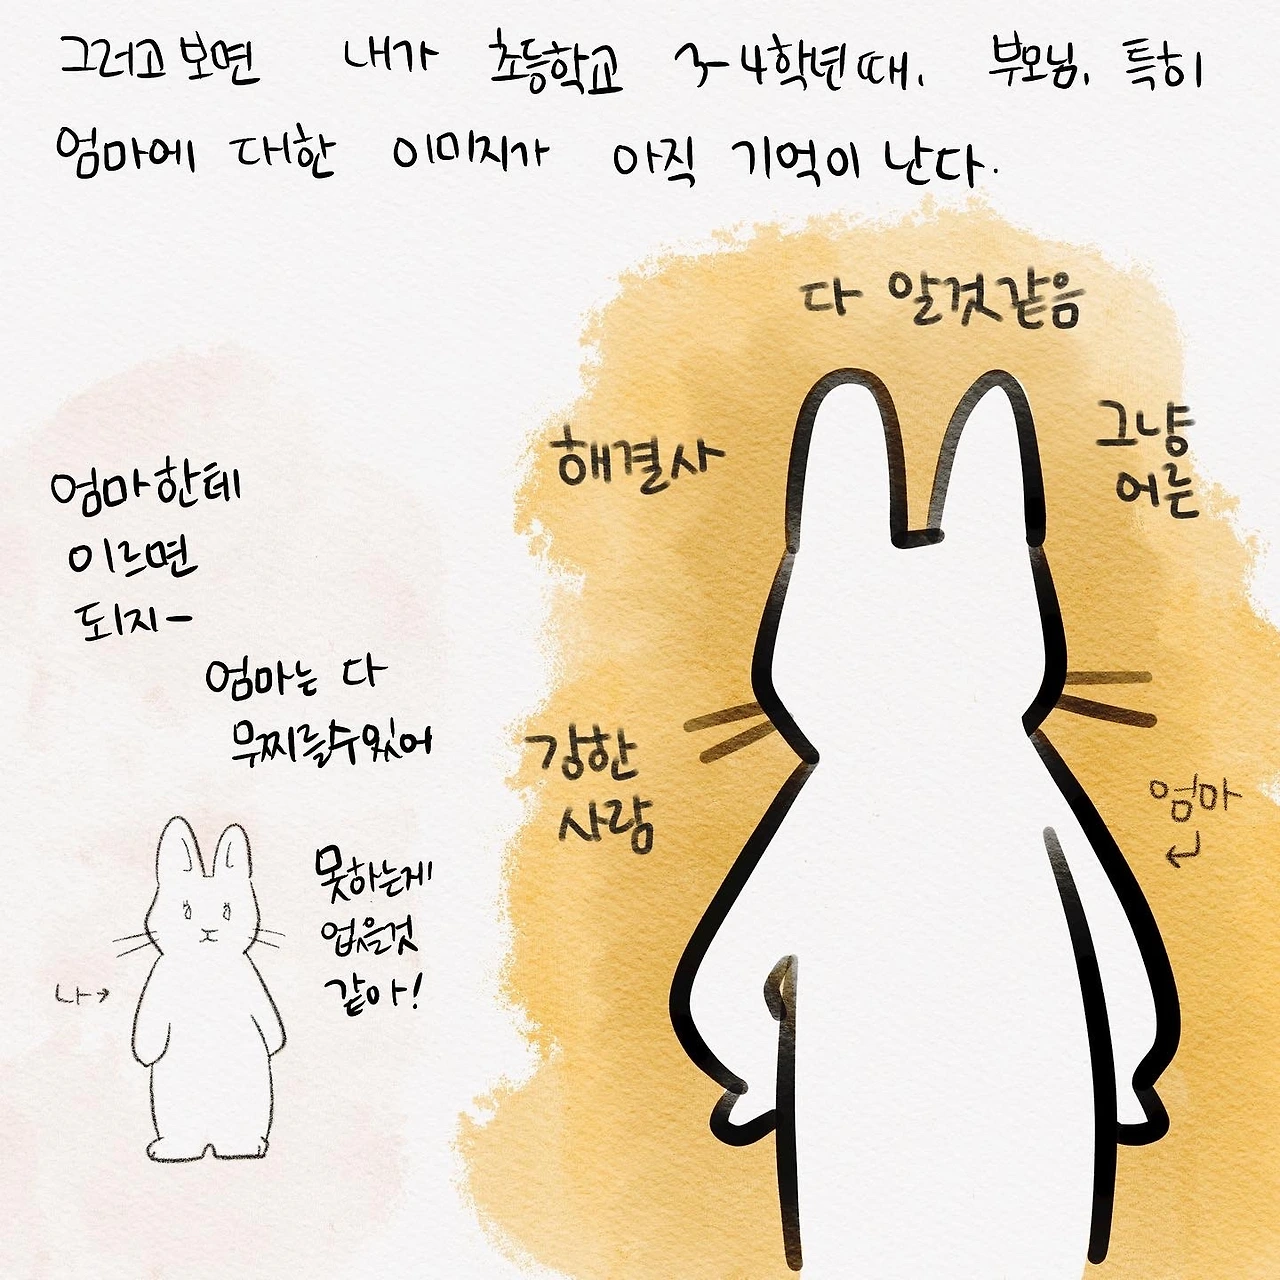 그러고 보면 내가 초등학교 3-4학년 때, 부모님, 특히
엄마에 대한 이미지가 아직 기억이 난다.
다 알것같음
해결사
그냥
어른
엄마한테
이르면
되지-
엄마는 다
무찌를수있어
강한
사람
엄마
못하는게
없을것
같아!
나→